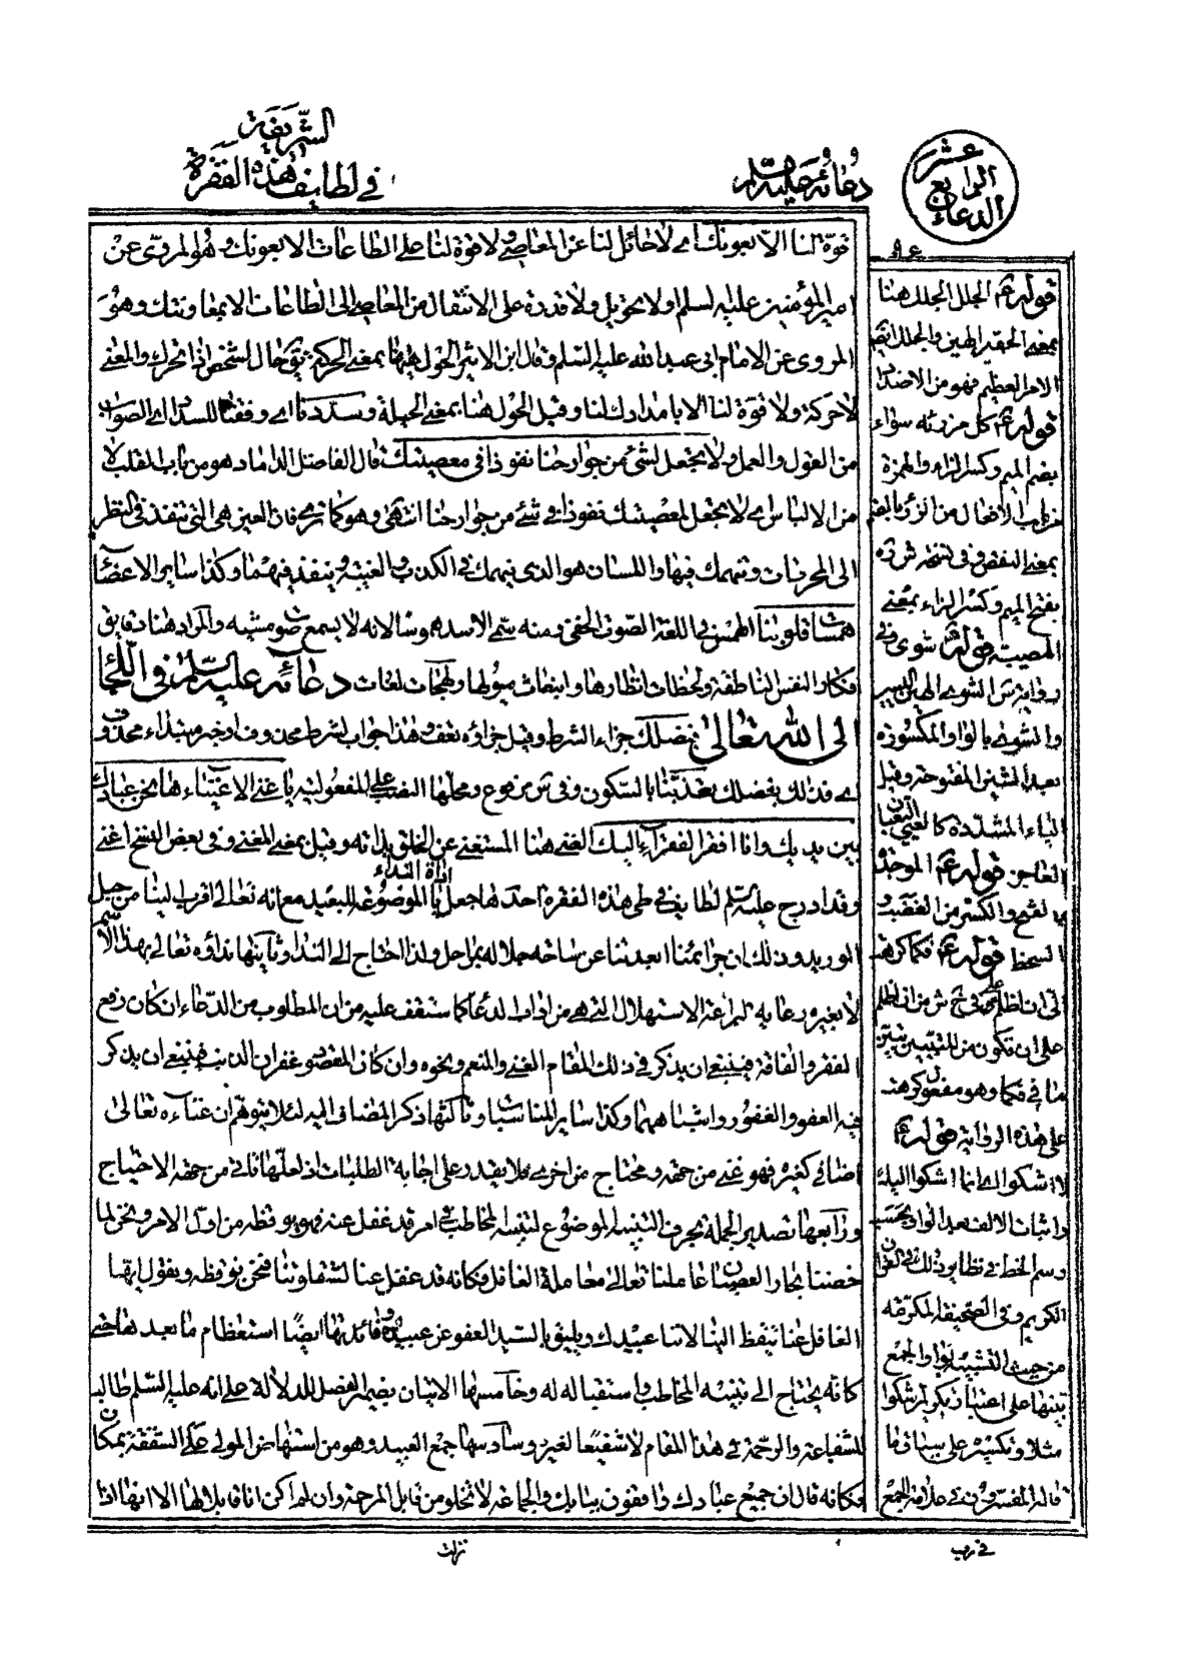 الشريفة
في لطايف هذه الفقرة
دعائه عليه السلم
الدعاء الرابع عشر
قوة لنا الا بعونك اي لا حائل لنا عن المعاصي ولا قوة لنا على الطاعات الا بعونك وهو المروي عن
امير المؤمنين عليه السلم اولا تحويل ولا قدرة على الانتقال من المعاصي الى الطاعات الا بمعاونتك وهو
المروي عن الامام ابي عبد الله عليه السلم وقال ابن الاثير الحول ههنا بمعنى الحركة يق حال الشخص اذا تحرك والمعنى
لا حركة ولا قوة لنا الا بامدادك لنا وقيل الحول هنا بمعنى الحيلة وسددنا اي وفقنا للسداد اي الصواب
من القول والعمل ولا تجعل لشئ من جوارحنا نفوذا في معصيتك قال الفاضل الداماد هو من باب القلب لا
من الالباس اي لا تجعل لمعصيتك نفوذا في شئ من جوارحنا انتهى وهو كما ترى فان العين هي التي تنفذ في النظر
الى المحرمات وتنهمك فيها واللسان هو الذي ينهمك في الكذب والغيبة وينفذ فيهما وكذا ساير الاعضاء
همسات قلوبنا الهمس في اللغة الصوت الخفي ومنه سمي الاسد هموسا لانه لا يسمع صوت مشيه والمراد هنا دقايق
افكار النفس الناطقة ولحظات انظارها وانبعاث ميولها ولهجات لغات دعائه عليه السلم في اللجاء
الى الله تعالى فبفضلك جزاء الشرط وقيل جزاؤه نعف وهذا جواب لشرط محذوف او خبر مبتداء محذوف
اي فذلك بفضلك تعذبنا بالسكون وفي ش مرفوع ومحلها النصب على المفعولية يا غني الاغنياء ها نحن عبادك
بين يديك وانا افقر الفقراء اليك الغني هنا المستغني عن الخلق بذاته وقيل بمعنى المغني وفي بعض النسخ اغنى
وقد ادرج عليه السلم لطايف في طي هذه الفقرة احدها جعل يا الموضوعة للبعيد مع انه تعالى اقرب الينا من حبل
اداة النداء
الوريد وذلك ان جرائمنا ابعدتنا عن ساحة جلاله بمراحل ولذا احتاج الى النداء وثانيتها نداؤه تعالى بهذا الاسم
لا بغيره رعاية لبراعة الاستهلال التي هي من اداب الدعاء كما ستقف عليه من ان المطلوب من الدعاء ان كان رفع
الفقر والفاقة فينبغي ان يذكر في ذلك المقام الغني والمنعم ونحوه وان كان المقصود غفران الذنب فينبغي ان يذكر
فيه العفو والغفور واشباههما وكذا ساير المناسبات وثالثتها ذكر المضاف اليه لئلا يتوهم ان غناءه تعالى
اضافي كغيره فهو غني من جهة ومحتاج من اخرى فلا يقدر على اجابة الطلبات اذ لعلها ناتي من جهة الاحتياج
ورابعها تصدير الجملة بحرف التنبيه الموضوع لتنبيه المخاطب في امر قد غفل عنه فهو يوقظه من اول الامر ونحن لما
خضنا بحار العصيان عاملنا تعالى معاملة الغافل فكانه قد غفل عنا لشقاوتنا فنحن نوقظه ونقول ايها
الغافل عنا تيقظ الينا لاننا عبيدك ويليق بالسيد العفو عن عبيده وفائدتها ايضا استعظام ما بعدها حتى
كانه يحتاج الى تنبيه المخاطب واستقباله له وخامسها الاتيان بضمير الفصل للدلالة على انه عليه السلم طالب
للشفاعة والرحمة في هذا المقام لا شفيعا لغيره وسادسها جمع العبيد وهو من استنهاض المولى على الشفقة بمكان
فكانه قال ان جميع عبادك واقفون ببابك والجماعة لا تخلو من قابل المرحمة وان لم اكن انا قابلا لها الا انها اذا
نزلت
قوله ع الجلل الجلل هنا
بمعنى الحقير الهين والجلل ايضا
الامر العظيم فهو من الاضداد
قوله ع كل مرزئة سواء
بضم الميم وكسر الزاء والهمزة
من باب الافعال من الرزء بالضم
بمعنى النقص وفي نسخة ش ره
بفتح الميم وكسر الزاء بمعنى
المصيبة قوله شوى وفي
رواية س الشوى الهين اليسير
والشوى بالواو المكسورة
بعد الشين المفتوحة وقبل
الياء المشددة كالغبي التعبان
العاجز قوله ع الموجدة
بالفتح والكسر من الغضب و
السخط قوله ع فكما كرهت
الي ان اظلم وفي خ ش من ان اظلم
على ان تكون من للتبيين تبين
ما في فكما وهو مفعول كرهت
على هذه الرواية قوله ع
لا اشكو اي انما اشكو اليك
واثبات الالف بعد الواو بحسب
رسم الخط في نظاير ذلك في القران
الكريم وفي الصحيفة المكرمة
من حيث التشبيه بواو الجمع
تنبيها على اعتبار تكرير شكوا
مثلا وتكثيره على سياق ما
قاله المفسرون في علامة الجمع
في رب